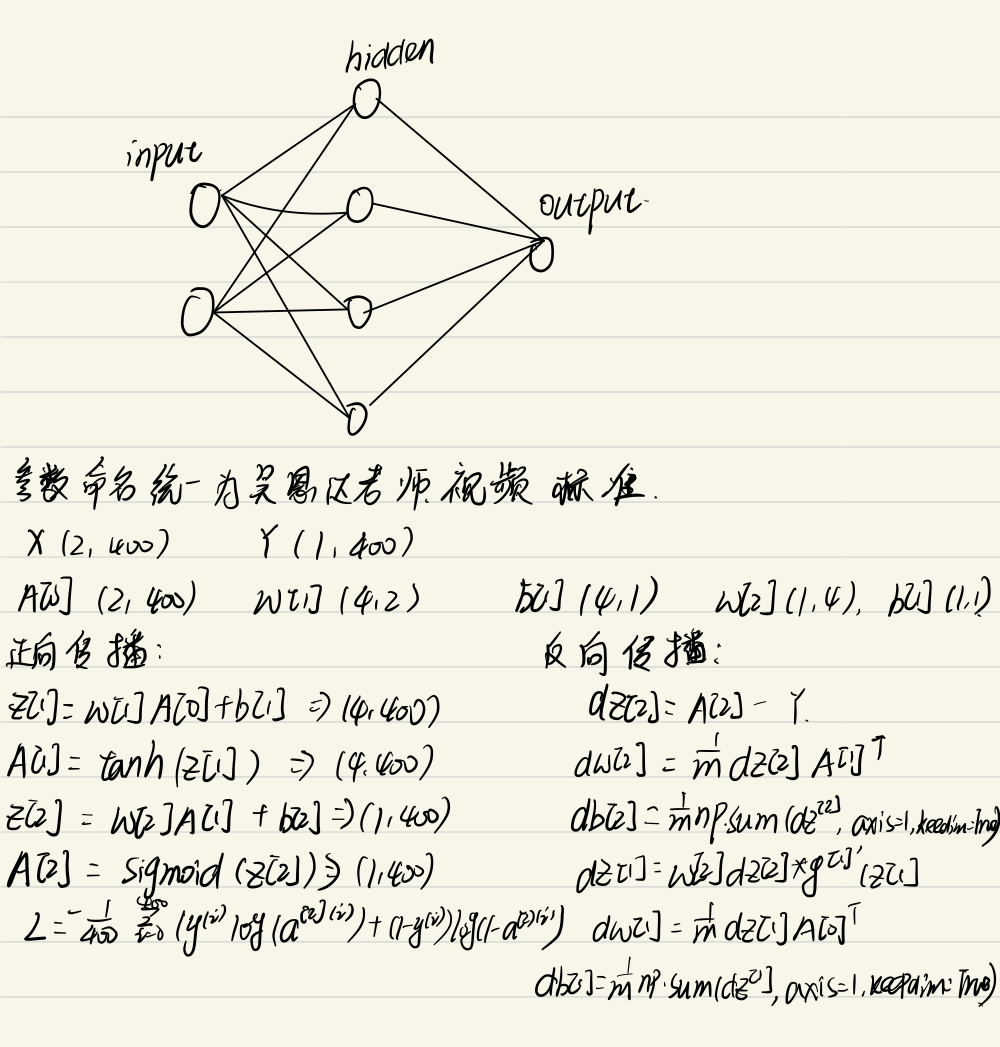 hidden
input
output
参数命名统一为吴恩达老师视频标准.
X (2, 400) Y (1, 400)
A[0] (2, 400) W[1] (4,2) b[1] (4,1) W[2] (1,4), b[2] (1,1)
正向传播: 反向传播:
z[1] = W[1] A[0] + b[1] => (4,400) dz[2] = A[2] - Y.
A[1] = tanh (z[1]) => (4,400) dw[2] = 1/m dz[2] A[1]^T
z[2] = W[2] A[1] + b[2] => (1,400) db[2] = 1/m np.sum (dz^[2], axis=1, keepdim=True)
A[2] = sigmoid (z[2]) => (1,400) dz[1] = W[2] dz[2] * g^[1]' (z[1]
L = - 1/400 Σ_{i=0}^{400} (y^(i) log (a^[2](i)) + (1-y^(i)) log(1-a^[2](i)) dw[1] = 1/m dz[1] A[0]^T
db[1] = 1/m np.sum(dz^[1], axis=1, keepdim=True)